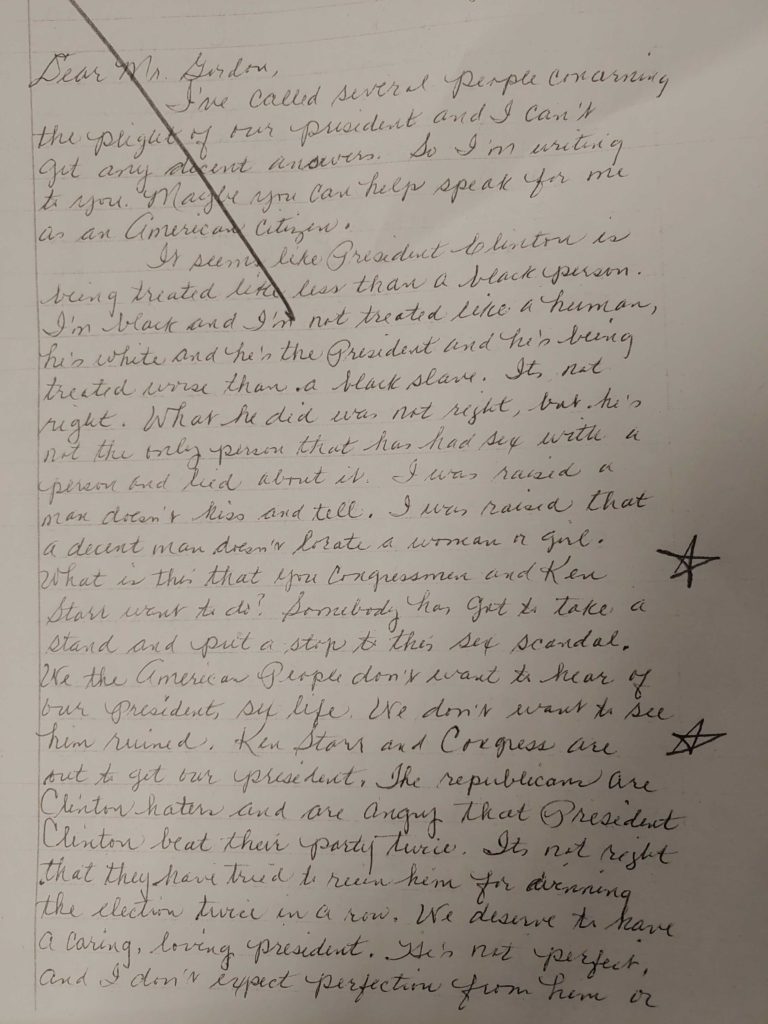 Dear Mr. Gordon,
I've called several people concerning
the plight of our president and I can't
get any decent answers. So I'm writing
to you. Maybe you can help speak for me
as an American citizen.
It seems like President Clinton is
being treated like less than a black person.
I'm black and I'm not treated like a human,
he's white and he's the President and he's being
treated worse than a black slave. Its not
right. What he did was not right, but he's
not the only person that has had sex with a
person and lied about it. I was raised a
man doesn't kiss and tell. I was raised that
a decent man doesn't a woman or girl.
What is this that you Congressmen and Ken
Starr want to do? Somebody has got to take a
stand and put a stop to this sex scandal.
We the American People don't want to hear of
our presidents sex life. We don't want to see
him ruined. Ken Starr and Congress are
out to get our president. The republicans are
Clinton haters and are angry that President
Clinton beat their party twice. Its not right
that they have tried to ruin him for winning
the election twice in a row. We deserve to have
a caring, loving president. He's not perfect,
and I don't expect perfection from him or